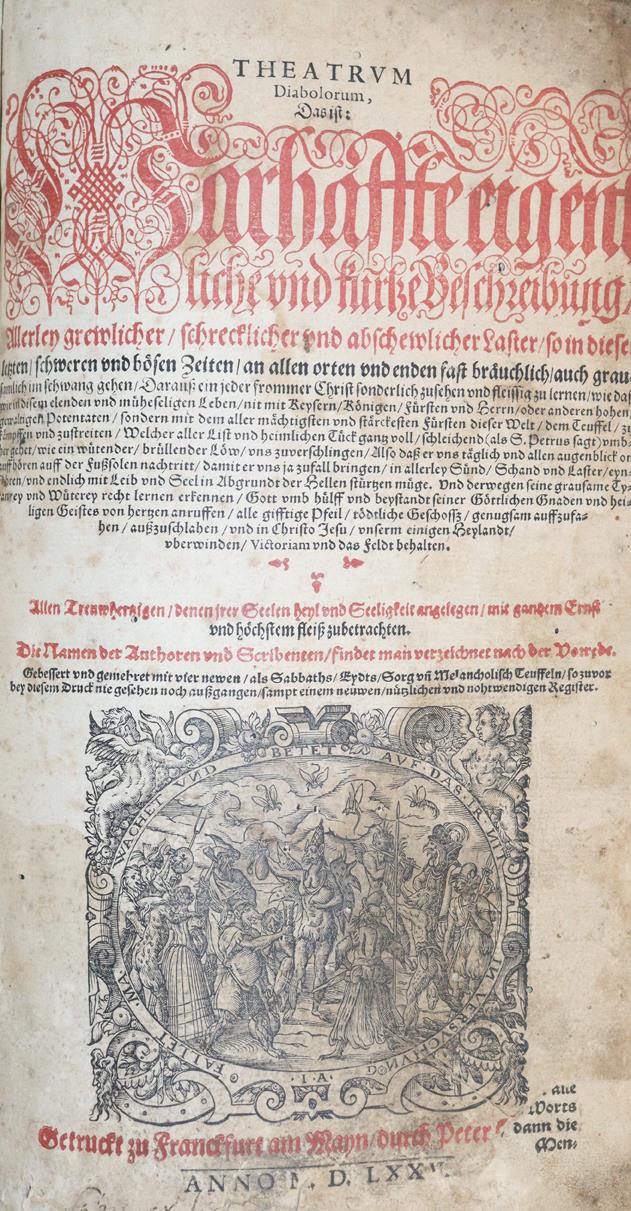 THEATRVM
Diabolorum,
Das ist:
Warhaffte eigent
liche vnd kurtze Beschreibung/
Allerley grewlicher / schrecklicher vnd abschewlicher Laster / so in diese
letzten / schweren vnd bösen Zeiten / an allen orten vnd enden fast bräuchlich / auch grau-
samlich im schwang gehen / Darauß ein jeder frommer Christ sonderlich zusehen vnd fleissig zu lernen / wie daß
wir in disem elenden vnd müheseligen Leben / nit mit Keysern / Königen / Fürsten vnd Herrn / oder anderen hohen
gewaltigen Potentaten / sondern mit dem aller mächtigsten vnd stärckesten Fürsten dieser Welt / dem Teuffel / zu
kämpffen vnd zustreiten / Welcher aller List vnd heimlichen Tück gantz voll / schleichend (als S. Petrus sagt) vmb-
her gehet / wie ein wütender / brüllender Löw / vns zuverschlingen / Also daß er vns täglich vnd allen augenblick on
auffhören auff der Fußsolen nachtritt / damit er vns ja zu fall bringen / in allerley Sünd / Schand vnd Laster / eyn-
führen / vnd endlich mit Leib vnd Seel in Abgrundt der Hellen stürtzen müge. Vnd derwegen seine grausame Ty-
ranney vnd Wüterey recht lernen erkennen / Gott vmb hülff vnd beystandt seiner Göttlichen Gnaden vnd hei-
ligen Geistes von hertzen anruffen / alle gifftige Pfeil / tödtliche Geschossz / genugsam auffzufa-
hen / außzuschlahen / vnd in Christo Jesu / vnserm einigen Heylandt /
vberwinden / Victoriam vnd das Feldt behalten.
Allen Trewhertzigen / denen jrer Seelen heyl vnd Seeligkeit angelegen / mit gantzem Ernst
vnd höchstem fleiß zubetrachten.
Die Namen der Authoren vnd Scribenten / findet man verzeichnet nach der Vorrede.
Gebessert vnd gemehret mit vier newen / als Sabbaths / Eydts / Sorg vñ Melancholisch Teuffeln / so zuvor
bey diesem Druck nie gesehen noch außgangen / sampt einem neuwen / nützlichen vnd nohtwendigen Register.
WACHET VND BETET AVF DAS IR NIT
IN VERSVCHVNG
FALLET MA
I.A.
alle
Worts
dann die
Men-
Getruckt zu Franckfurt am Mayn / durch Peter
ANNO M. D. LXX